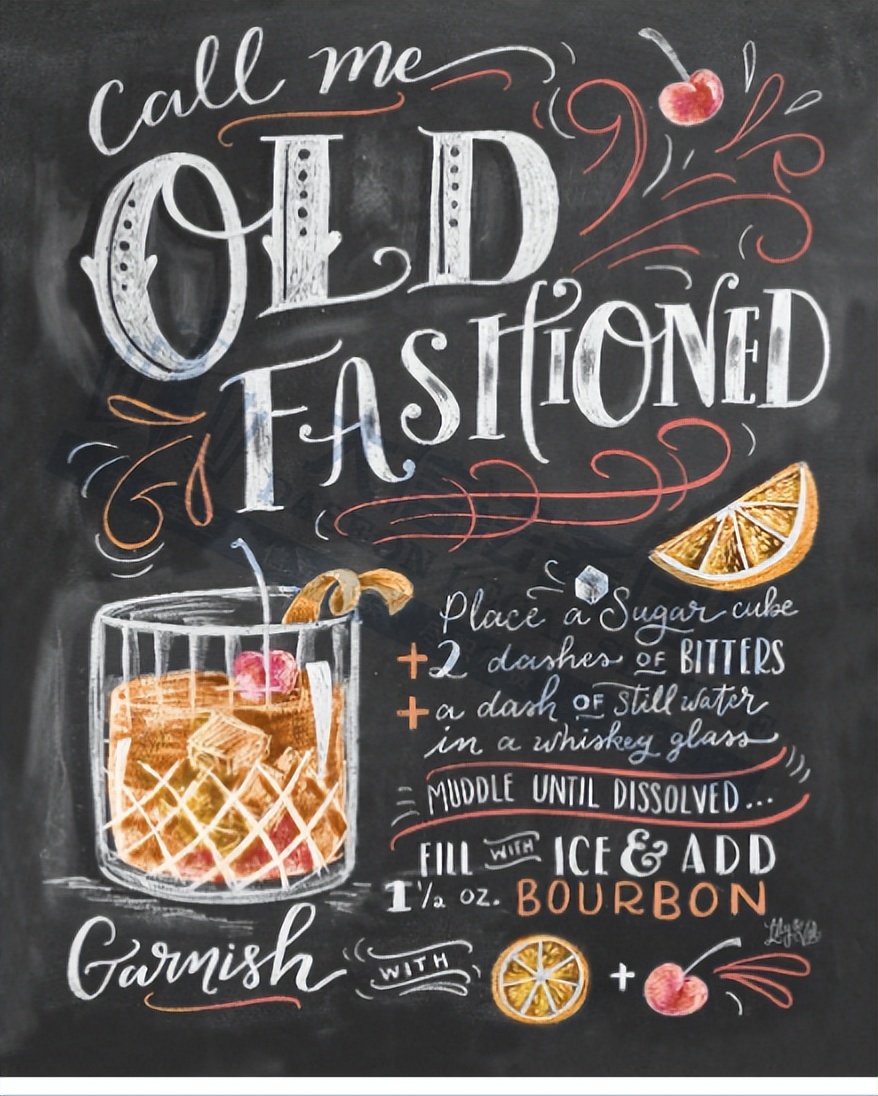 Call me
OLD
FASHIONED
Place a Sugar cube
+2 dashes OF BITTERS
+a dash OF Still water
in a whiskey glass
MUDDLE UNTIL DISSOLVED...
FILL WITH ICE & ADD
1 1/2 oz. BOURBON
Lily & Val
Garnish WITH +